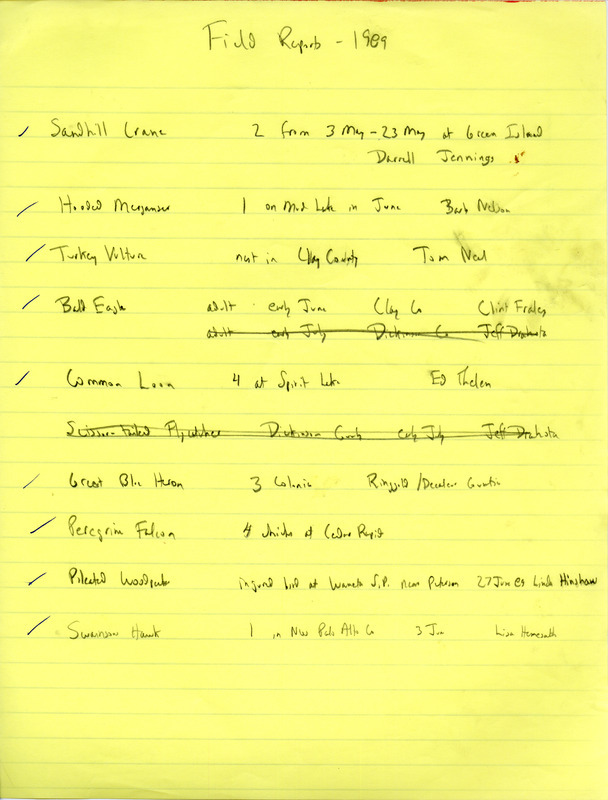 Field Reports - 1989
Sandhill Crane 2 from 3 May - 23 May at Green Island
Darrell Jennings
Hooded Merganser 1 on Mud Lake in June Barb Nelson
Turkey Vulture nest in Clay County Tom Neal
Bald Eagle adult early June Clay Co Clint Fraley
adult early July Dickinson Co Jeff
Common Loon 4 at Spirit Lake Ed Thelen
Scissor-tailed Flycatcher Dickinson County early July Jeff
Great Blue Heron 3 Colonies Ringgold/Decatur Counties
Peregrine Falcon 4 chicks at Cedar Rapids
Pileated Woodpecker injured bird at Wanata S.P. near Peterson 27 June 89 Linda Hinshaw
Swainson Hawk 1 in NW Palo Alto Co 3 Jun Lisa Hemesath